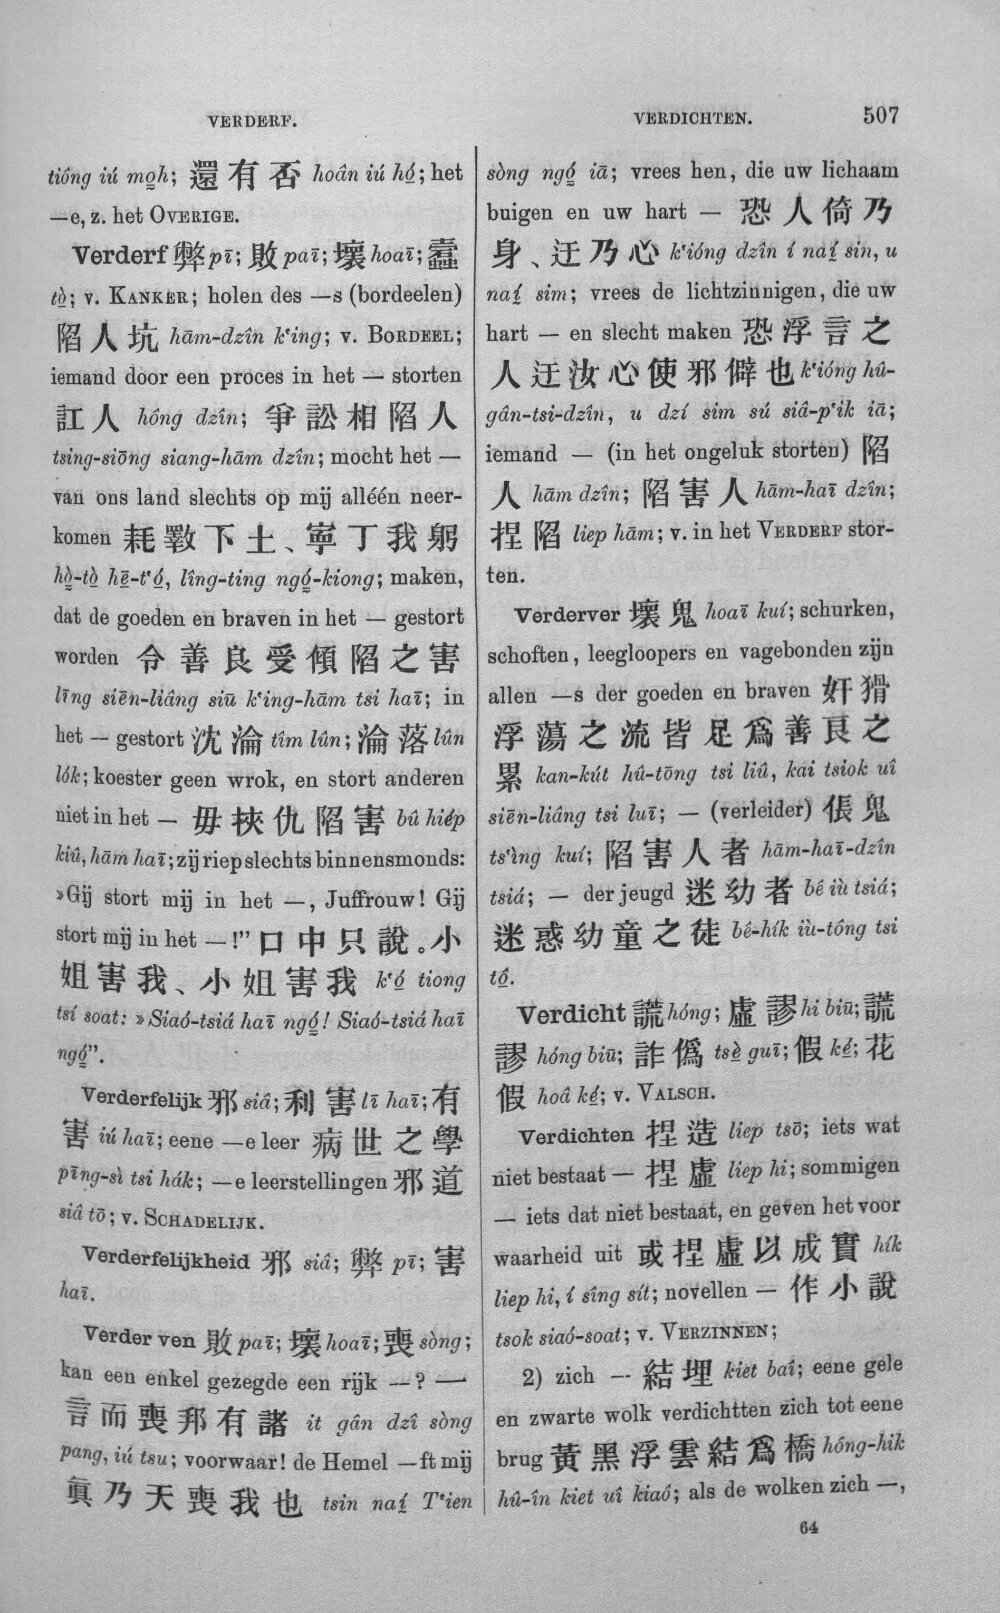 VERDERF.
VERDICHTEN. 507
tióng iú mo̤h; 還有否 hoân iú hó̤; het
—e, z. het OVERIGE.
Verderf 弊 pī; 敗 paī; 壞 hoaī; 蠹
tò̤; v. KANKER; holen des —s (bordeelen)
陷人坑 hām-dzîn k‘ing; v. BORDEEL;
iemand door een proces in het — storten
訌人 hóng dzîn; 爭訟相陷人
tsing-siōng siang-hām dzîn; mocht het —
van ons land slechts op mij alléén neer-
komen 耗斁下土、寧丁我躬
hò̤-tò̤ hē̤-t‘ó̤, lîng-ting ngó̤-kiong; maken,
dat de goeden en braven in het — gestort
worden 令善良受傾陷之害
līng siēn-liâng siū k‘ing-hām tsi haī; in
het — gestort 沈淪 tîm lûn; 淪落 lûn
lók; koester geen wrok, en stort anderen
niet in het — 毋挾仇陷害 bû hiép
kiû, hām haī; zij riep slechts binnensmonds:
»Gij stort mij in het —, Juffrouw! Gij
stort mij in het —!” 口中只說。小
姐害我、小姐害我 k‘ó̤ tiong
tsí soat: »Siaó-tsiá haī ngó̤! Siaó-tsiá haī
ngó̤”.
Verderfelijk 邪 siâ; 利害 lī haī; 有
害 iú haī; eene —e leer 病世之學
pīng-sì tsi hák; —e leerstellingen 邪道
siâ tō; v. SCHADELIJK.
Verderfelijkheid 邪 siâ; 弊 pī; 害
haī.
Verder ven 敗 paī; 壞 hoaī; 喪 sòng;
kan een enkel gezegde een rijk —? 一
言而喪邦有諸 it gân dzî sòng
pang, iú tsu; voorwaar! de Hemel —ft mij
眞乃天喪我也 tsin naí̤ T‘ien
sòng ngó̤ iā; vrees hen, die uw lichaam
buigen en uw hart — 恐人倚乃
身、迂乃心 k‘ióng dzîn í naí̤ sin, u
naí̤ sim; vrees de lichtzinnigen, die uw
hart — en slecht maken 恐浮言之
人迂汝心使邪僻也 k‘ióng hû-
gân-tsi-dzîn, u dzí sim sú siâ-p‘ik iā;
iemand — (in het ongeluk storten) 陷
人 hām dzîn; 陷害人 hām-haī dzîn;
捏陷 liep hām; v. in het VERDERF stor-
ten.
Verderver 壞鬼 hoaī kuí; schurken,
schoften, leegloopers en vagebonden zijn
allen —s der goeden en braven 奸猾
浮蕩之流皆足爲善良之
累 kan-kút hû-tōng tsi liû, kai tsiok uî
siēn-liâng tsi luī; — (verleider) 倀鬼
ts‘ìng kuí; 陷害人者 hām-haī-dzîn
tsiá; — der jeugd 迷幼者 bê iù tsiá;
迷惑幼童之徒 bê-hík iù-tông tsi
tô̤.
Verdicht 謊 hóng; 虛謬 hi biū; 謊
謬 hóng biū; 詐僞 tsè̤ guī; 假 ké̤; 花
假 hoâ ké̤; v. VALSCH.
Verdichten 捏造 liep tsō; iets wat
niet bestaat — 捏虛 liep hi; sommigen
— iets dat niet bestaat, en geven het voor
waarheid uit 或捏虛以成實 hík
liep hi, í sîng sít; novellen — 作小說
tsok siaó-soat; v. VERZINNEN;
2) zich — 結埋 kiet baî; eene gele
en zwarte wolk verdichtten zich tot eene
brug 黃黑浮雲結爲橋 hóng-hik
hû-în kiet uî kiaó; als de wolken zich —,
64